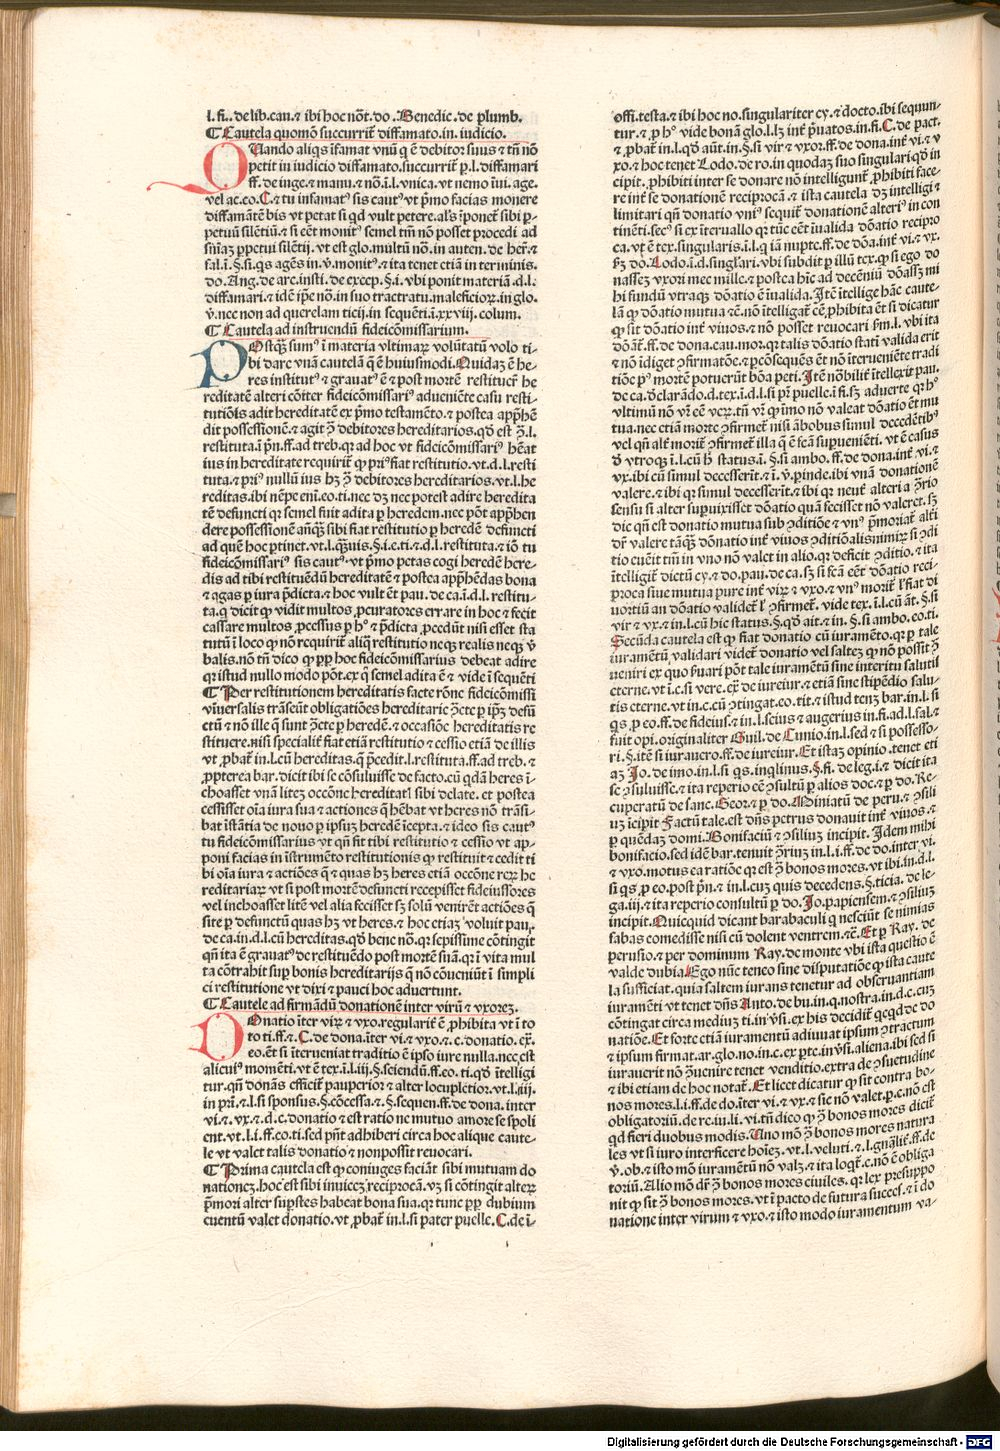 l. fi.. de lib. cau. ⁊ ibi hoc nōt. do. Benedic. de plumb.
¶ Cautela quomō succurrit̄ diffamato. in. iudicio.
QUando aliq̄s īfamat vnū q̄ ē debitor suus ⁊ tn̄ nō
petit in iudicio diffamato. succurrit̄ p. l. diffamari
ff. de inge. ⁊ manu. ⁊ nō. ī. l. vnica. vt nemo īui. age.
vel ac. co. C. ⁊ tu infamatꝰ sis cautꝰ vt pͥmo facias monere
diffamātē bis vt petat si qd vult petere. als īponet̄ sibi ꝑ-
petuū silētiū. ⁊ si eēt monitꝰ semel tm̄ nō posset procedi ad
sniaꝫ ꝑpetui silētij. vt est glo. multū nō. in auten. de her̄. ⁊
fal. ī. §. si. q̄s agēs in. v̄. monitꝰ. ⁊ ita tenet etiā in terminis.
do. Ang. de are. insti. de excep. §. i. vbi ponit materiā .d. l.
diffamari. ⁊ idē ip̄e nō. in suo tractatu. maleficioꝝ. in glo.
v̄. nec non ad querelam ticij. in sequēti. ī. xxviij. colum.
¶ Cautela ad instruendū fideicōmissarium.
POstqꝫ sumꝰ ī materia vltimaꝝ volūtatū volo ti-
bi dare vnā cautelā q̄ ē huiusmodi. Quidaꝫ ē he-
res institutꝰ ⁊ grauatꝰ ē ⁊ post mortē restituer̄ he
reditatē alteri cōiter fideicōmissariꝰ adueniēte casu resti-
tutiōis adit hereditatē ex pͥmo testamēto. ⁊ postea app̄hē
dit possessionē. ⁊ agit ꝯ̄ debitores hereditarios. qd̄ est ꝯ̄. l.
restituta. ī pͥn. ff. ad treb. qꝛ ad hoc vt fideicōmissariꝰ hēat
ius in hereditate requirit̄ ꝙ priꝰ fiat restitutio. vt. d. l. resti
tuta. ⁊ priꝰ nullū ius hꝫ ꝯ̄ debitores hereditarios. vt. l. he
reditas. ibi nēpe eni̅. eo. ti. nec dꝫ nec potest adire heredita
tē defuncti qꝛ semel fuit adita ꝑ heredem. nec pōt app̄hen
dere possessionē anq̄ꝫ sibi fiat restitutio ꝑ heredē defuncti
ad quē hoc ꝑtinet. vt. l. q̄ꝫuis. §. i. e. ti. ⁊. d. l. restituta. ⁊ iō tu
fideicōmissariꝰ sis cautꝰ. vt pͥmo petas cogi heredē here-
dis ad tibi restituēdū hereditatē ⁊ postea app̄hēdas bona
⁊ agas ꝑ iura p̄dicta. ⁊ hoc vult ēt pau. de ca. ī. d. l. restitu-
ta. q dicit ꝙ vidit multos ꝓcuratores errare in hoc ⁊ fecit
cassare multos ꝓcessus ꝑ hͦ ⁊ p̄dicta ꝓcedūt nisi esset sta
tutū ī loco ꝙ nō requirit̄ aliq̄ restitutio neqꝫ realis neqꝫ v̄
balis. nō tn̄ dico ꝙ ꝓp hoc fideicōmissarius debeat adire
qꝛ istud nullo modo pōt. ex q̄ semel adita ē ⁊ vide ī sequēti
¶ Per restitutionem hereditatis facte rōne fideicōmissi
vīuersalis trāseūt obligatiōes hereditarie ꝯ̄cte ꝑ ip̄ꝫ defū
ctū ⁊ nō ille q̄ sunt ꝯ̄cte ꝑ heredē. ⁊ occasiōe hereditatis re
stituere. nisi specialit̄ fiat etiā restitutio ⁊ cessio etiā de illis
vt ꝓbat̄ in. l. cū hereditas. q̄ p̄cedit. l. restituta. ff. ad treb. ⁊
ꝓpterea bar. dicit ibi se cōsuluisse de facto. cū qdā heres ī-
choasset vnā liteꝫ occōne hereditatꝭ sibi delate. et postea
cessisset oīa iura sua ⁊ actiones q̄ hēbat vt heres nō trāsi-
bat īstātia de nouo ꝑ ipsuꝫ heredē īcepta. ⁊ ideo sis cautꝰ
tu fideicōmissarius vt qn̄ fit tibi restitutio ⁊ cessio vt ap-
poni facias in īstrumēto restitutionis ꝙ restituit ⁊ cedit ti
bi oīa iura ⁊ actiōes q̄ ⁊ quas hꝫ heres etiā occōne reꝝ he
reditariaꝝ vt si post mortē defuncti recepisset fideiussores
vel inchoasset litē vel alia fecisset sꝫ solū venirēt actiōes q̄
site ꝑ defunctū quas hꝫ vt heres. ⁊ hoc etiaꝫ voluit pau.
de ca. in. d. l. cū hereditas. qd̄ bene nō. qꝛ sepissime cōtingit
qn̄ ita ē grauatꝰ de restituēdo post mortē suā. qꝛ ī vita mul
ta cōtrahit suꝑ bonis hereditarijs q̄ nō cōueniūt ī simpli
ci restitutione vt dixi ⁊ pauci hoc aduertunt.
¶ Cautele ad firmādū donationē inter virū ⁊ vxoreꝫ.
DOnatio īter viꝝ ⁊ vxo. regularit̄ ē ꝓhibita vt ī to
to ti. ff. ⁊. C. de dona. īter vi. ⁊ vxo. ⁊. c. donatio. ex̄.
eo. ēt si īterueniat traditio ē ipso iure nulla. nec est
alicuiꝰ momēti. vt ē tex. ī. l. iij. §. sciendū. ff. eo. ti. qd̄ ītelligi
tur. qn̄ donās efficit̄ pauperior ⁊ alter locupletior. vt. l. iiij.
in pri. ⁊. l. si sponsus. §. cōcessa. ⁊. §. sequen. ff. de dona. inter
vi. ⁊. vx. ⁊. d. c. donatio ⁊ est ratio ne mutuo amore se spoli
ent. vt. l. i. ff. eo. ti. sed pn̄t adhiberi circa hoc alique caute-
le vt valet talis donatio ⁊ non possit reuocari.
¶ Prima cautela est ꝙ coniuges faciāt sibi mutuam do
nationeꝫ. hoc est sibi inuiceꝫ reciprocā. vꝫ si cōtingit alteꝝ
pͥmori alter suꝑstes habeat bona sua. qꝛ tunc ꝓp dubium
euentū valet donatio. vt ꝓbat̄ in. l. si pater puelle. C. de ī-
offi. testa. ⁊ ibi hoc no. singulariter cy. ⁊ docto. ibi sequun-
tur. ⁊ ꝑ hͦ vide bonā glo. l. lꝫ int̄ pͥuatos. in. fi. C. de pact.
⁊ ꝓbat̄ in. l. qd̄ aūt. in. §. si vir ⁊ vxor. ff. de dona. int̄ vi. ⁊ v
xo. ⁊ hoc tenet Lodo. de ro. in quodaꝫ suo singulari qd̄ in
cipit. ꝓhibiti inter se donare nō intelligunt̄ ꝓhibiti face-
re int̄ se donationē reciprocā. ⁊ ista cautela dꝫ intelligi ⁊
limitari qn̄ donatio vniꝰ sequit̄ donationē alteriꝰ in con
tinēti. secꝰ si ex īteruallo qꝛ tūc eēt īualida dōatio recipro
ca. vt ē tex. singularis. ī. l. q̄ iā nupte. ff. de dōa. int̄ vi. ⁊ vx.
hꝫ do. Lodo. ī. d. singlar̄i. vbi subdit ꝑ illū tex. ꝙ si ego do
nasseꝫ vxori mee mille. ⁊ postea hīc ad decēniū dōassꝫ mi
hi fundū vtraqꝫ dōatio ē īualida. Itē ītellige hāc caute-
lā ꝙ dōatio mutua ⁊c̄. nō ītelligat̄ cē ꝓhibita ēt si dicatur
ꝙ sit dōatio int̄ viuos. ⁊ nō posset reuocari ſm̄. l. vbi ita
dōat̄. ff. de dona. cau. mor. qꝛ talis dōatio statī valida erit
⁊ nō īdiget ꝯfirmatōe. ⁊ ꝑcōsequēs ēt nō īterueniēte tradi
tiōe pͥꝰ mortē potuerūt bōa peti. Itē nōbilit̄ ītellexit pau.
de ca. ꝺclarādo. d. tex. ī. d. l. si pr̄ puelle. ī fi. sꝫ aduerte qꝛ hͦ
vltimū nō vꝝ eē veꝝ. tn̄ vꝝ ꝙ īmo nō valeat dōatio ēt mu
tua. nec etiā morte ꝯfirmet̄ nisi ābobus simul decedētibꝰ
vel qn̄ alt̄ morit̄ ꝯfirmet̄ illa q̄ ē fcā supuenienti. vt ē casus
ꝺ vtroqꝫ ī. l. cū hͦ status. ī. §. si ambo. ff. de dona. int̄. vi. ⁊
vx. ibi cū simul decesserīt. ⁊ ī. v̄. ꝑinde. ibi vnā donationē
valere. ⁊ ibi qꝛ simul decesserīt. ⁊ ibi qꝛ neut̄ alteri a ꝯ̄rio
sensu si alter supuixisset dōatio quā fecisset nō valeret. sꝫ
dic qn̄ est donatio mutua sub ꝯditiōe ⁊ vnꝰ pͥmoriat̄ alt̄i
dr̄ valere tāqꝫ dōnatio int̄ viuos ꝯditiōalis nimiꝝ si ꝯdi
tio euēit tm̄ in vno nō valet in alio. qꝛ deficit ꝯditio. ⁊ ita
ītelligit̄ dictū cy. ⁊ do. pau. de ca. sꝫ si fcā eēt dōatio reci-
proca siue mutua pure int̄ viꝝ ⁊ vxo. ⁊ vnꝰ morit̄ l̄ fiat di
uortiū an dōatio valideт̄ l̄ ꝯfirmet̄. vide tex. ī. l. cū āt. §. si
vir ⁊ vx. ⁊ in. l. cū hic status. §. qd̄ ait. ⁊ in. §. si ambo. eo. ti.
Secūda cautela est ꝙ fiat donatio cū iuramēto. qꝛ ꝑ tale
iuramētū validari videt̄ donatio vel salteꝫ ꝙ nō possit ꝯ̄
ueniri ex quo ẜuari pōt tale iuramētū sine interitu salutis
eterne. vt ī. c. si vere. ex̄ de iureiur. ⁊ etiā sine stipēdio salu-
tis eterne. vt in. c. cū ꝯtingat. eo. tit. ⁊ istud tenꝫ bar. in. l. si
q̄s ꝓ eo. ff. de fideius. ⁊ in. l. seius ⁊ augerius in. fi. ad. l. fal. ⁊
fuit opi. originaliter Guil. de Cunio. in. l. sed ⁊ si possesso-
ri. §. itē si iurauero. ff. de iureiur. Et istaꝫ opinio. tenet eti
aꝫ Jo. de imo. in. l. si q̄s. inqlinus. §. fi. de leg. i. ⁊ dicit ita
se ꝯsuluisse. ⁊ ita reperio eē ꝯsultū ꝑ alios doc. ⁊ ꝑ do. Re-
cuperatū de sanc. Geor. ⁊ ꝑ do. Miniatū de peru. ⁊ ꝯsili
uꝫ īcipit Factū tale. est dn̄s petrus donauit int̄ viuos. ⁊
ꝑ quēdaꝫ domi. Bonifaciū ⁊ ꝯsiliuꝫ incipit. Idem mihi
bonifacio. sed idē bar. tenuit ꝯ̄riuꝫ in. l. i. ff. de do. inter vi.
⁊ vxo. motus ea ratiōe qꝛ est ꝯ̄ bonos mores. vt ibi. in. d. l.
si q̄s. ꝓ eo. post pͥn. ⁊ in. l. cuꝫ quis decedens. §. ticia. de le-
ga. iij. ⁊ ita reperio consultū ꝑ do. Jo. papiensem. ⁊ ꝯsiliuꝫ
incipit. Quicquid dicant barabaculi q̄ nesciūt se nimias
fabas comedisse nisi cū dolent ventrem. ⁊c̄. Et ꝑ Ray. de
perusio. ⁊ per dominum Ray. de monte vbi ista questio ē
valde dubia. Ego nūc teneo sine disputatiōe ꝙ ista caute
la sufficiat. quia saltem iurans tenetur ad obseruantiam
iuramēti vt tenet dn̄s Anto. de bu. in. q. nostra. in. d. c. cuꝫ
cōtingat circa mediuꝫ ti. in v̄si. ex his decidit̄ qcqd de do
natiōe. Et forte etiā iuramentū adiuuat ipsum ꝯtractum
⁊ ipsum firmat. ar. glo. no. in. c. ex ꝑte. in v̄si. aliena. ibi sed si
iurauerit nō ꝯ̄uenire tenet venditio. extra de ꝯsuetudine
⁊ ibi etiam de hoc notat̄. Et licet dicatur ꝙ sit contra bo-
nos mores. l. i. ff. de do. īter vi. ⁊ vx. ⁊ sic nō valet. ꝑ. c. nō est
obligatoriū. de re. iu. li. vi. tn̄ dico ꝙ ꝯ̄ bonos mores dicit̄
qd fieri duobus modis. Uno mō ꝯ̄ bonos mores natura
les vt si iuro interficere hoīeꝫ. vt. l. veluti. ⁊. l. gn̄alit̄. ff. de
v̄. ob. ⁊ isto mō iuramētū nō valꝫ. ⁊ ita loqt̄. c. nō ē obliga
toriū. Alio mō dr̄ ꝯ̄ bonos mores ciuiles. qꝛ lex presuppo
nit ꝙ sit ꝯ̄ bonos mores. vt ī pacto de futura succes. ⁊ ī do
natione inter virum ⁊ vxo. ⁊ isto modo iuramentum va-
Digitalisierung gefördert durch die Deutsche Forschungsgemeinschaft - DFG